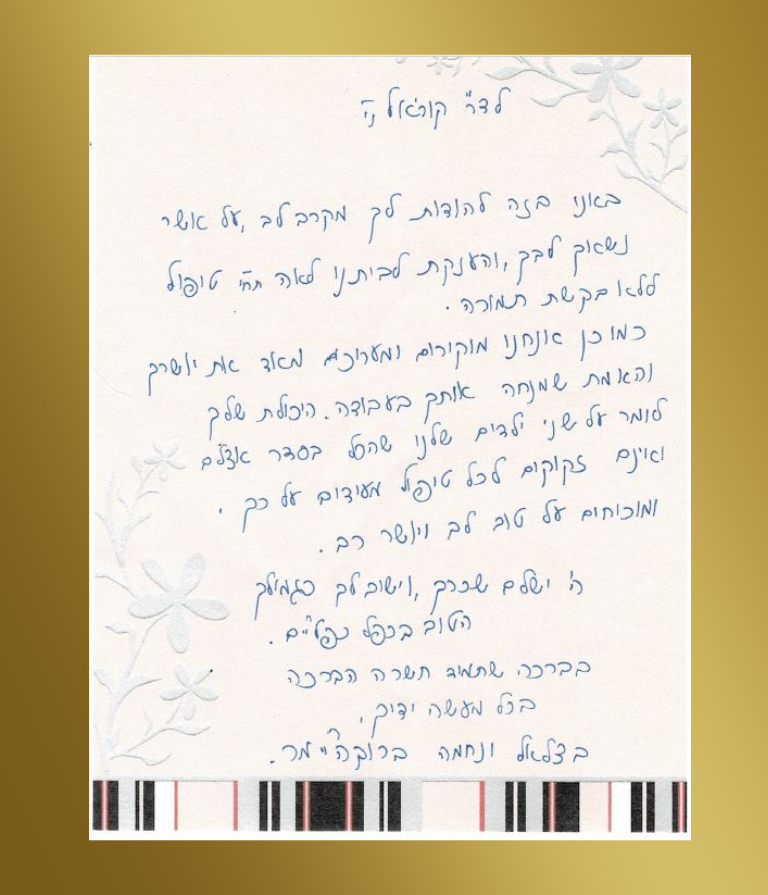 לדר' קוראל נ"י
באנו בזה להודות לך מקרב לב, על אשר
נשאוך לבך, והענקת לביתנו לאה תחי' טיפול
ללא בקשת תמורה.
כמו כן אנחנו מוקירים ומעריכים מאוד את יושרך
והאמת שמנחה אותך בעבודה. היכולת שלך
לומר על שני ילדים שלנו שהכל בסדר אצלם
ואינם זקוקים לכל טיפול מעידים על כך.
ומוכיחים על טוב לב ויושר רב.
ה' ישלם שכרך, וישוב לך כגמולך
הטוב בכפל כפליים.
בברכה שתמיד תשרה הברכה
בכל מעשה ידיך,
בצלאל ונחמה